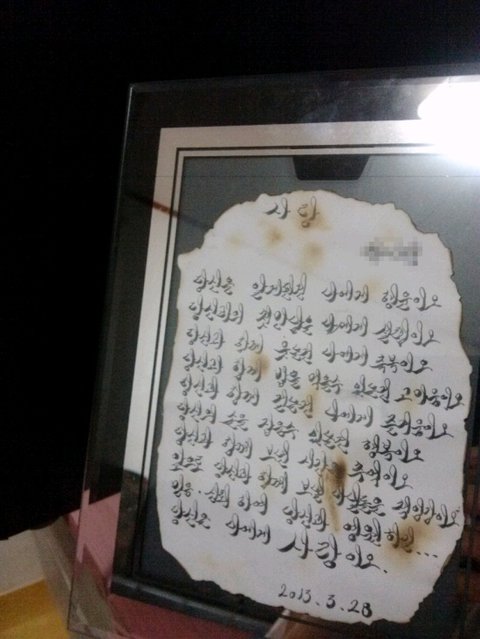 사랑
당신을 알게된건 나에게 행운이오
당신과의 첫인상은 나에게 설렘이오
당신과 함께 웃는건 나에게 축복이오
당신과 함께 밥을 먹을수 있는건 고마움이오
당신과 함께 걷는건 나에게 즐거움이오
당신의 손을 잡을수 있는건 행복이오
당신과 함께 보낸 시간은 추억이오
앞으로 당신과 함께 보낼 나날들은 책임감이오
믿음, 신뢰 하에 당신과 영원하길...
당신은 나에게 사랑이오.
2013.3.28